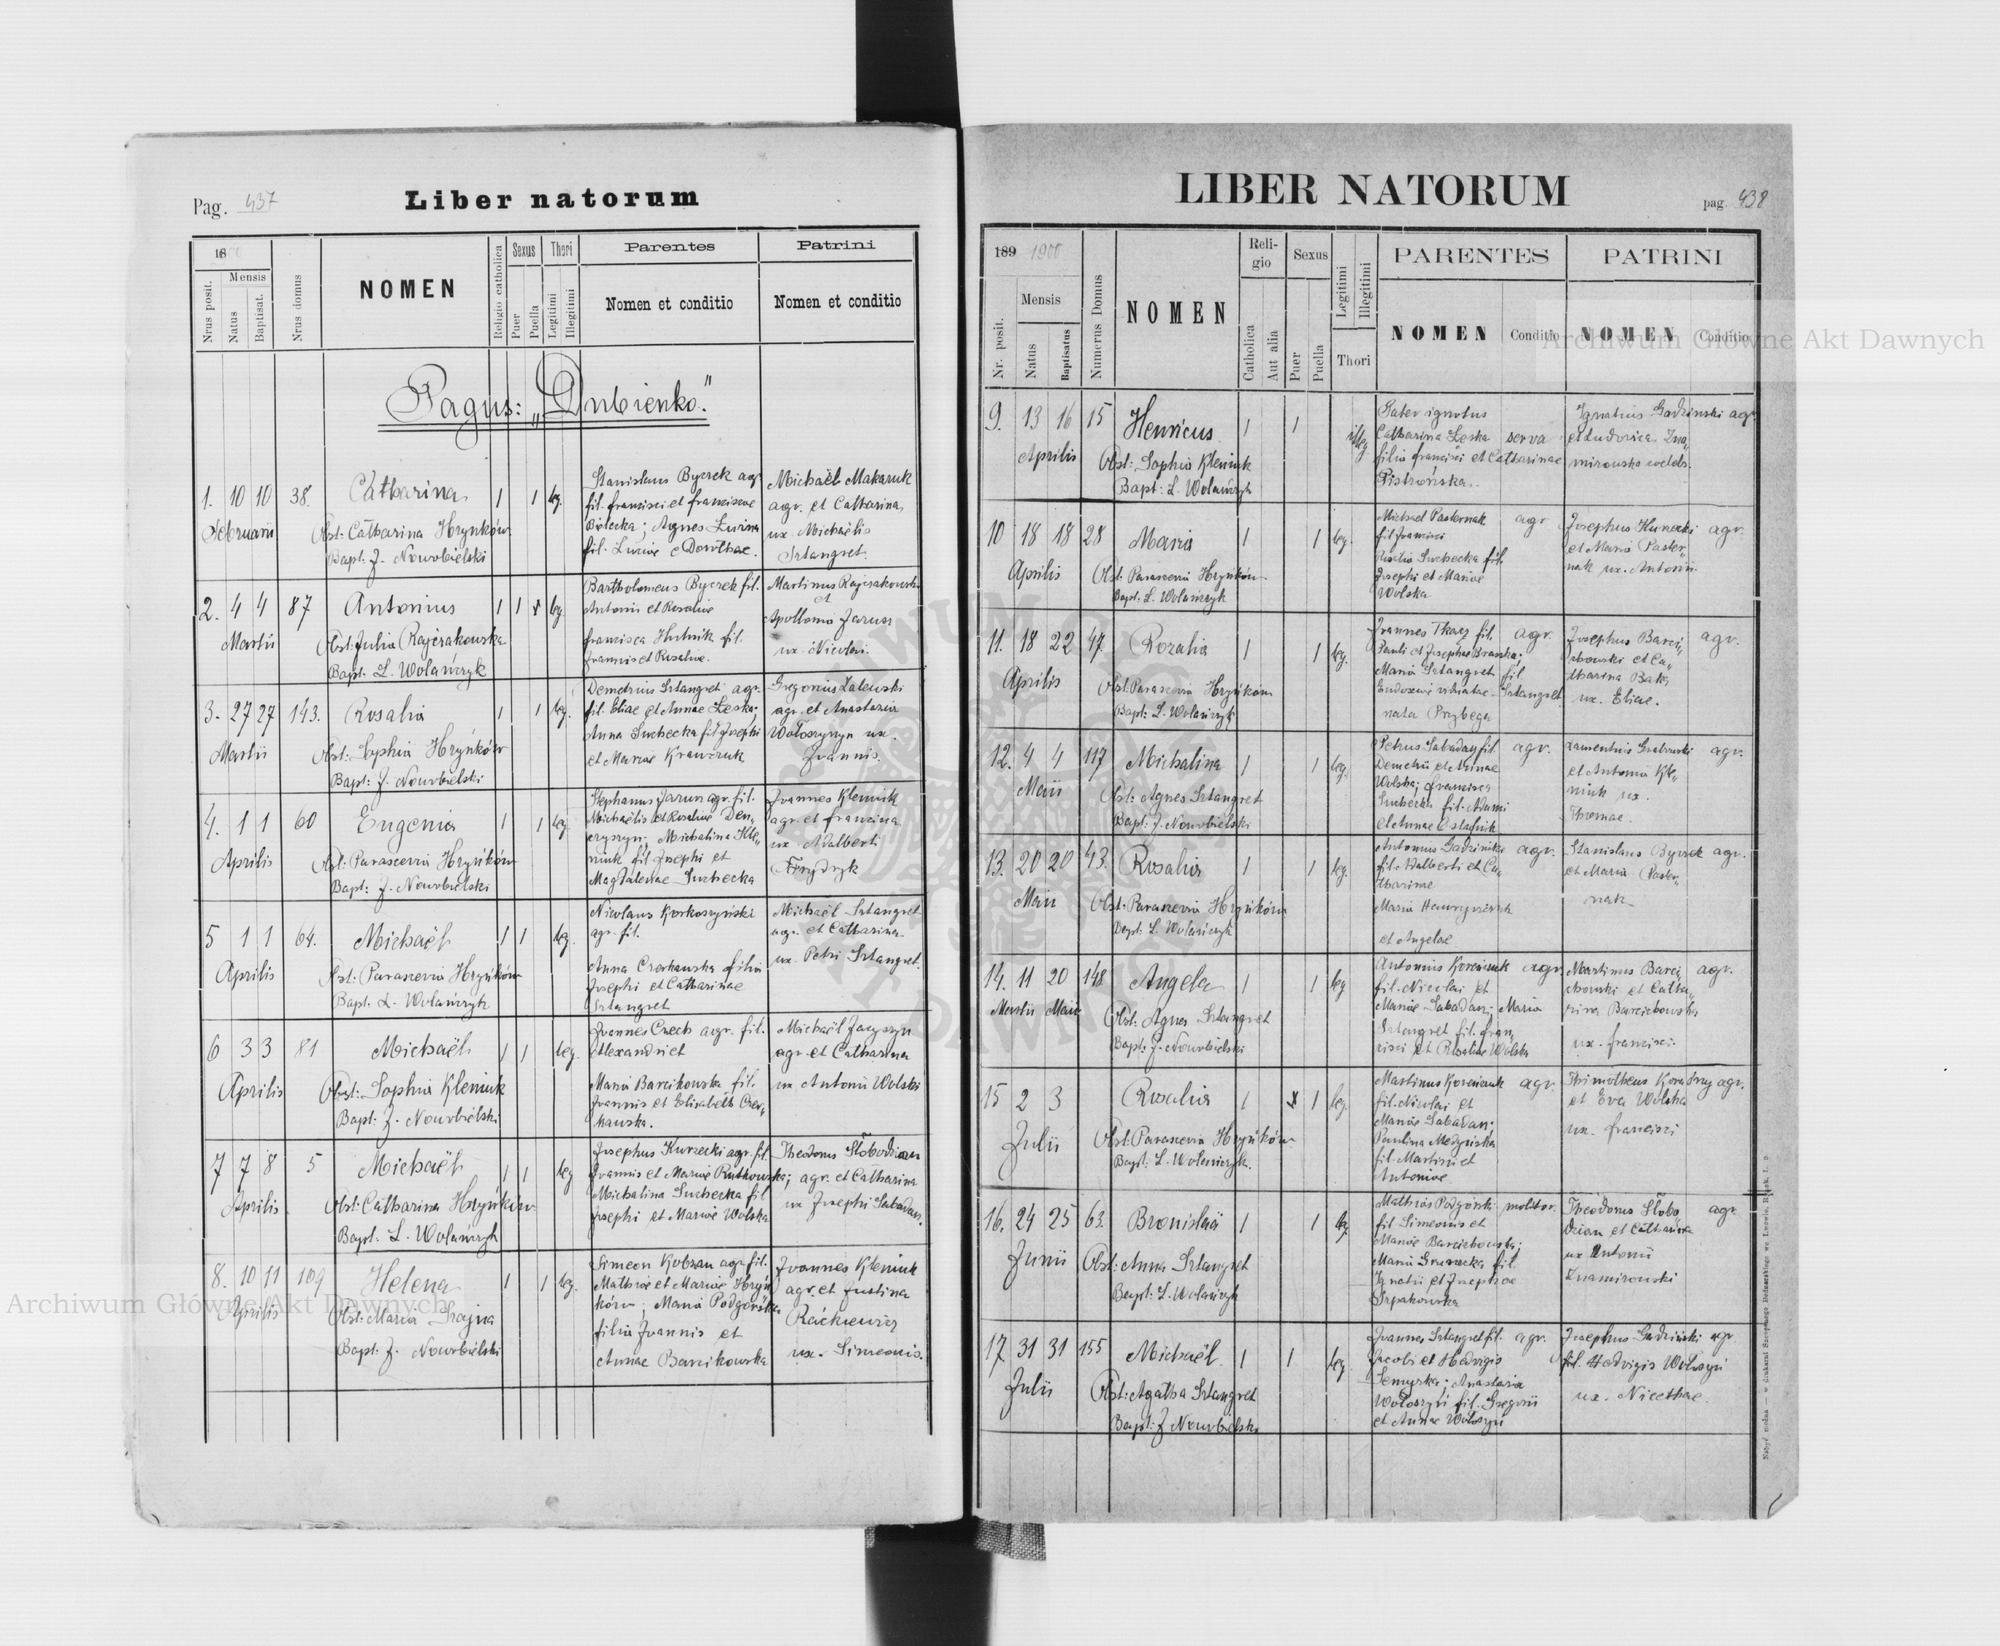 Pag. 437
Liber natorum
18
Mensis
Nrus posit.
Natus
Baptisat.
Nrus domus
NOMEN
Religio catholica
Sexus
Puer
Puella
Thori
Legitimi
Illegitimi
Parentes
Nomen et conditio
Patrini
Nomen et conditio
Pagus: "Dubienko."
1. 10 10 38. Catharina 1 1 leg.
Februarii
Obst: Catharina Hryńków
Bapt: J. Nowobielski
Stanislaus Byczek agr.
fil. Francisci et Franciscae
fil. Lucae et Dorothae.
Michaël Makaruk
agr. et Catharina
ux. Michaëlis
Sztangret
2. 4 4 87 Antonius 1 1 x leg.
Martii
Obst: Julia Rajczakowska
Bapt: L. Wolańczyk
Bartholomeus Byczek fil.
Antonii et Rosaliae
Francisca Hutnik fil.
Joannis et Rosaliae.
Martinus Rajczakowski
et
Apollonia Jarun
ux. Nicolai.
3. 27 27 143. Rosalia 1 1 leg.
Martii
Obst: Sophia Hryńków
Bapt: J. Nowobielski
Demetrius Sztangret agr.
fil. Eliae et Annae Łeska;
Anna Suchecka fil. Josephi
et Mariae Krawczuk
Gregorius Zalewski
agr. et Anastazia
Wołoszyn ux.
Joannis.
4. 1 1 60 Eugenia 1 1 leg.
Aprilis
Obst: Parascevia Hryńków
Bapt: J. Nowobielski
Stephanus Jarun agr. fil.
Michaëlis et Rosaliae
Michalina Kle-
niuk fil. Josephi et
Magdalenae Suchecka
Joannes Kleniuk
agr. et Francisca
ux. Adalberti
Frydryk
5 1 1 64. Michaël 1 1 leg.
Aprilis
Obst: Parascevia Hryńków
Bapt. L. Wolańczyk
Nicolaus Korkoszyński
agr. fil.
Anna Czerkawska filia
Josephi et Catharinae
Sztangret
Michaël Sztangret
agr. et Catharina
ux. Petri Sztangret.
6 3 3 81 Michaël 1 1 leg.
Aprilis
Obst: Sophia Kleniuk
Bapt: J. Nowobielski
Joannes Czech agr. fil.
Alexandri et
Maria Barcikowska fil.
Joannis et Elisabeth Czer-
kawska.
Michaël Jacyszyn
agr. et Catharina
ux Antonii Wolski
7 7 8 5 Michaël 1 1 leg
Aprilis
Obst: Catharina Hryńków
Bapt. L. Wolańczyk
Josephus Kurzecki agr. fil.
Joannis et Mariae Rutkowska;
Michalina Suchecka fil
Josephi et Mariae Wolska
Theodorus Słobodzian
agr. et Catharina
ux Josephi Sabadasz.
8. 10 11 109 Helena 1 1 leg.
Aprilis
Obst: Maria Szajna
Bapt: J. Nowobielski
Simeon Kobzan agr. fil.
Mathiae et Mariae Hryń-
ków; Maria Podgórska
filia Joannis et
Annae Barcikowska
Joannes Kleniuk
agr. et Justina
Raćkiewicz
ux. Simeonis.
LIBER NATORUM
pag 438
189 1900
Nr. posit.
Mensis
Natus
Baptisatus
Numerus Domus
NOMEN
Reli-
gio
Catholica
Aut alia
Sexus
Puer
Puella
Legitimi
Illegitimi
Thori
PARENTES
NOMEN
Conditio
PATRINI
NOMEN
Conditio
9. 13 16 15 Henricus 1 1 illeg
Aprilis
Obst: Sophia Kleniuk
Bapt: L. Wolańczyk
Pater ignotus
Catharina Łeska serva
filia Francisci et Catharinae
Pistrońska.
Ignatius Gadziński agr.
et Ludovica Zna-
mirowska coelebs.
10 18 18 28 Maria 1 1 leg.
Aprilis
Obst: Parascevia Hryńków
Bapt: L. Wolańczyk
Michael Pasternak agr
fil Francisci
Rosalia Suchecka fil.
Josephi et Mariae
Wolska
Josephus Kurzecki agr.
et Maria Paster-
nak ux. Antonii.
11. 18 22 47. Rozalia 1 1 leg.
Aprilis
Obst: Parascevia Hryńków
Bapt: L. Wolańczyk
Joannes Tkacz fil. agr.
Pauli et Josephae
Maria Sztangret fil
Eudoxiae viduatae Sztangret
nata Przybega
Josephus Barci- agr.
kowski et Ca-
tharina Bak
ux. Eliae.
12. 4 4 117 Michalina 1 1 leg.
Maii
Obst: Agnes Sztangret
Bapt: J. Nowobielski
Petrus Sabadasz fil. agr.
Demetrii et Annae
Wolska; Francisca
Suchecka fil. Adami
et Annae Ostafiuk
Laurentius Grabowski agr.
et Antonia Kle-
niuk ux.
Thomae.
13. 20 20 43. Rosalia 1 1 leg.
Maii
Obst: Parascevia Hryńków
Bapt. L. Wolańczyk
Antonius Gadziński agr.
fil. Adalberti et Ca-
tharinae
Maria
et Angelae
Stanislaus Byczek agr.
et Maria Paster-
nak
14. 11 20 148 Angela 1 1 leg
Martii Maii
Obst: Agnes Sztangret
Bapt: J. Nowobielski
Antonius Koreniuk agr.
fil. Nicolai et
Mariae Sabadasz; Maria
Sztangret fil. Fran-
cisci et Rosaliae Wolska
Martinus Barci- agr.
kowski et Catha-
rina Barcikowska
ux. Francisci.
15 2 3 Rosalia 1 x 1 leg.
Julii
Obst: Parascevia Hryńków
Bapt. L. Wolańczyk.
Martinus Koreniuk agr.
fil. Nicolai et
Mariae Sabadasz;
Paulina Medyńska
fil. Martini et
Antoniae
Thimotheus agr.
et Eva Wolska
ux. Francisci
16. 24 25 63. Bronislaä 1 1 leg.
Junii
Obst: Anna Sztangret
Bapt: L. Wolańczyk
Mathias Podgórski molitor.
fil Simeonis et
Mariae Barcikowska;
Maria fil
Ignatii et Josephae
Szpakowska
Theodorus Słobo agr
dzian et Catharina
ux Antonii
Znamirowski
17. 31 31 155 Michaël 1 1 leg.
Julii
Obst: Agatha Sztangret
Bapt: J Nowobielski
Joannes Sztangret fil. agr.
Jacobi et Hedvigis
Anastazia
Wołoszyn fil. Gregorii
et Annae Wołoszyn
Josephus Gadziński agr
Hedvigis Wołoszyn
ux. Nicethae.
Archiwum Główne Akt Dawnych
Archiwum Główne Akt Dawnych